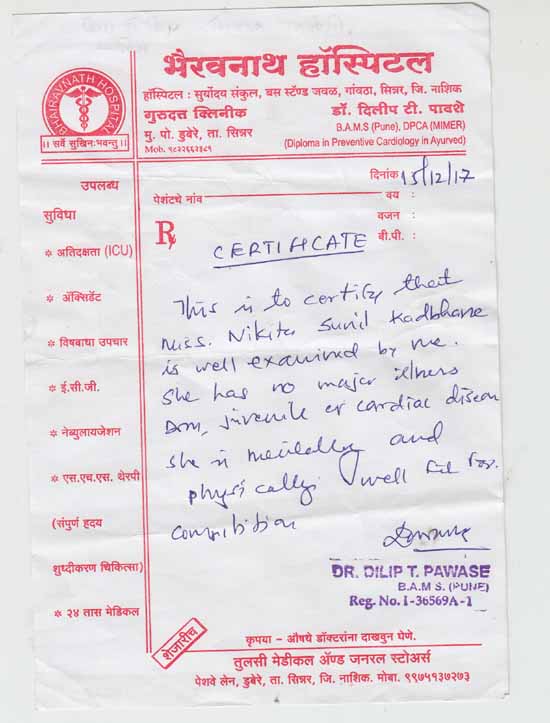 भैरवनाथ हॉस्पिटल
BHAIRAVNATH HOSPITAL
।। सर्वे सुखिनःभवन्तु ।।
हॉस्पिटल : सुर्योदय संकुल, बस स्टॅण्ड जवळ, गांवठा, सिन्नर, जि. नाशिक
गुरुदत्त क्लिनीक
डॉ. दिलीप टी. पावशे
मु. पो. डुबेरे, ता. सिन्नर
B.A.M.S (Pune), DPCA (MIMER)
Mob. ९८२२६६२३८९
(Diploma in Preventive Cardiology in Ayurved)
दिनांक 15/12/17
पेशंटचे नांव
वय :
वजन :
बी.पी. :
उपलब्ध
सुविधा
* अतिदक्षता (ICU)
* ॲक्सिडेंट
* विषबाधा उपचार
* ई.सी.जी.
* नेब्युलायजेशन
* एस.एच.एस. थेरपी
(संपुर्ण हृदय
शुध्दीकरण चिकित्सा)
* २४ तास मेडिकल
Rx
CERTIFICATE
This is to certify that
Miss. Nikita Sunil Kadbhane
is well examined by me.
She has no major illness
juvenile or cardiac
she is mentally and
physically well fit for.
DR. DILIP T. PAWASE
B.A.M S. (PUNE)
Reg. No. I-36569A-1
शेजारीच
कृपया - औषधे डॉक्टरांना दाखवुन घेणे.
तुलसी मेडीकल ॲण्ड जनरल स्टोअर्स
पेशवे लेन, डुबेरे, ता. सिन्नर, जि. नाशिक. मोबा. ९९७५१३७२७३